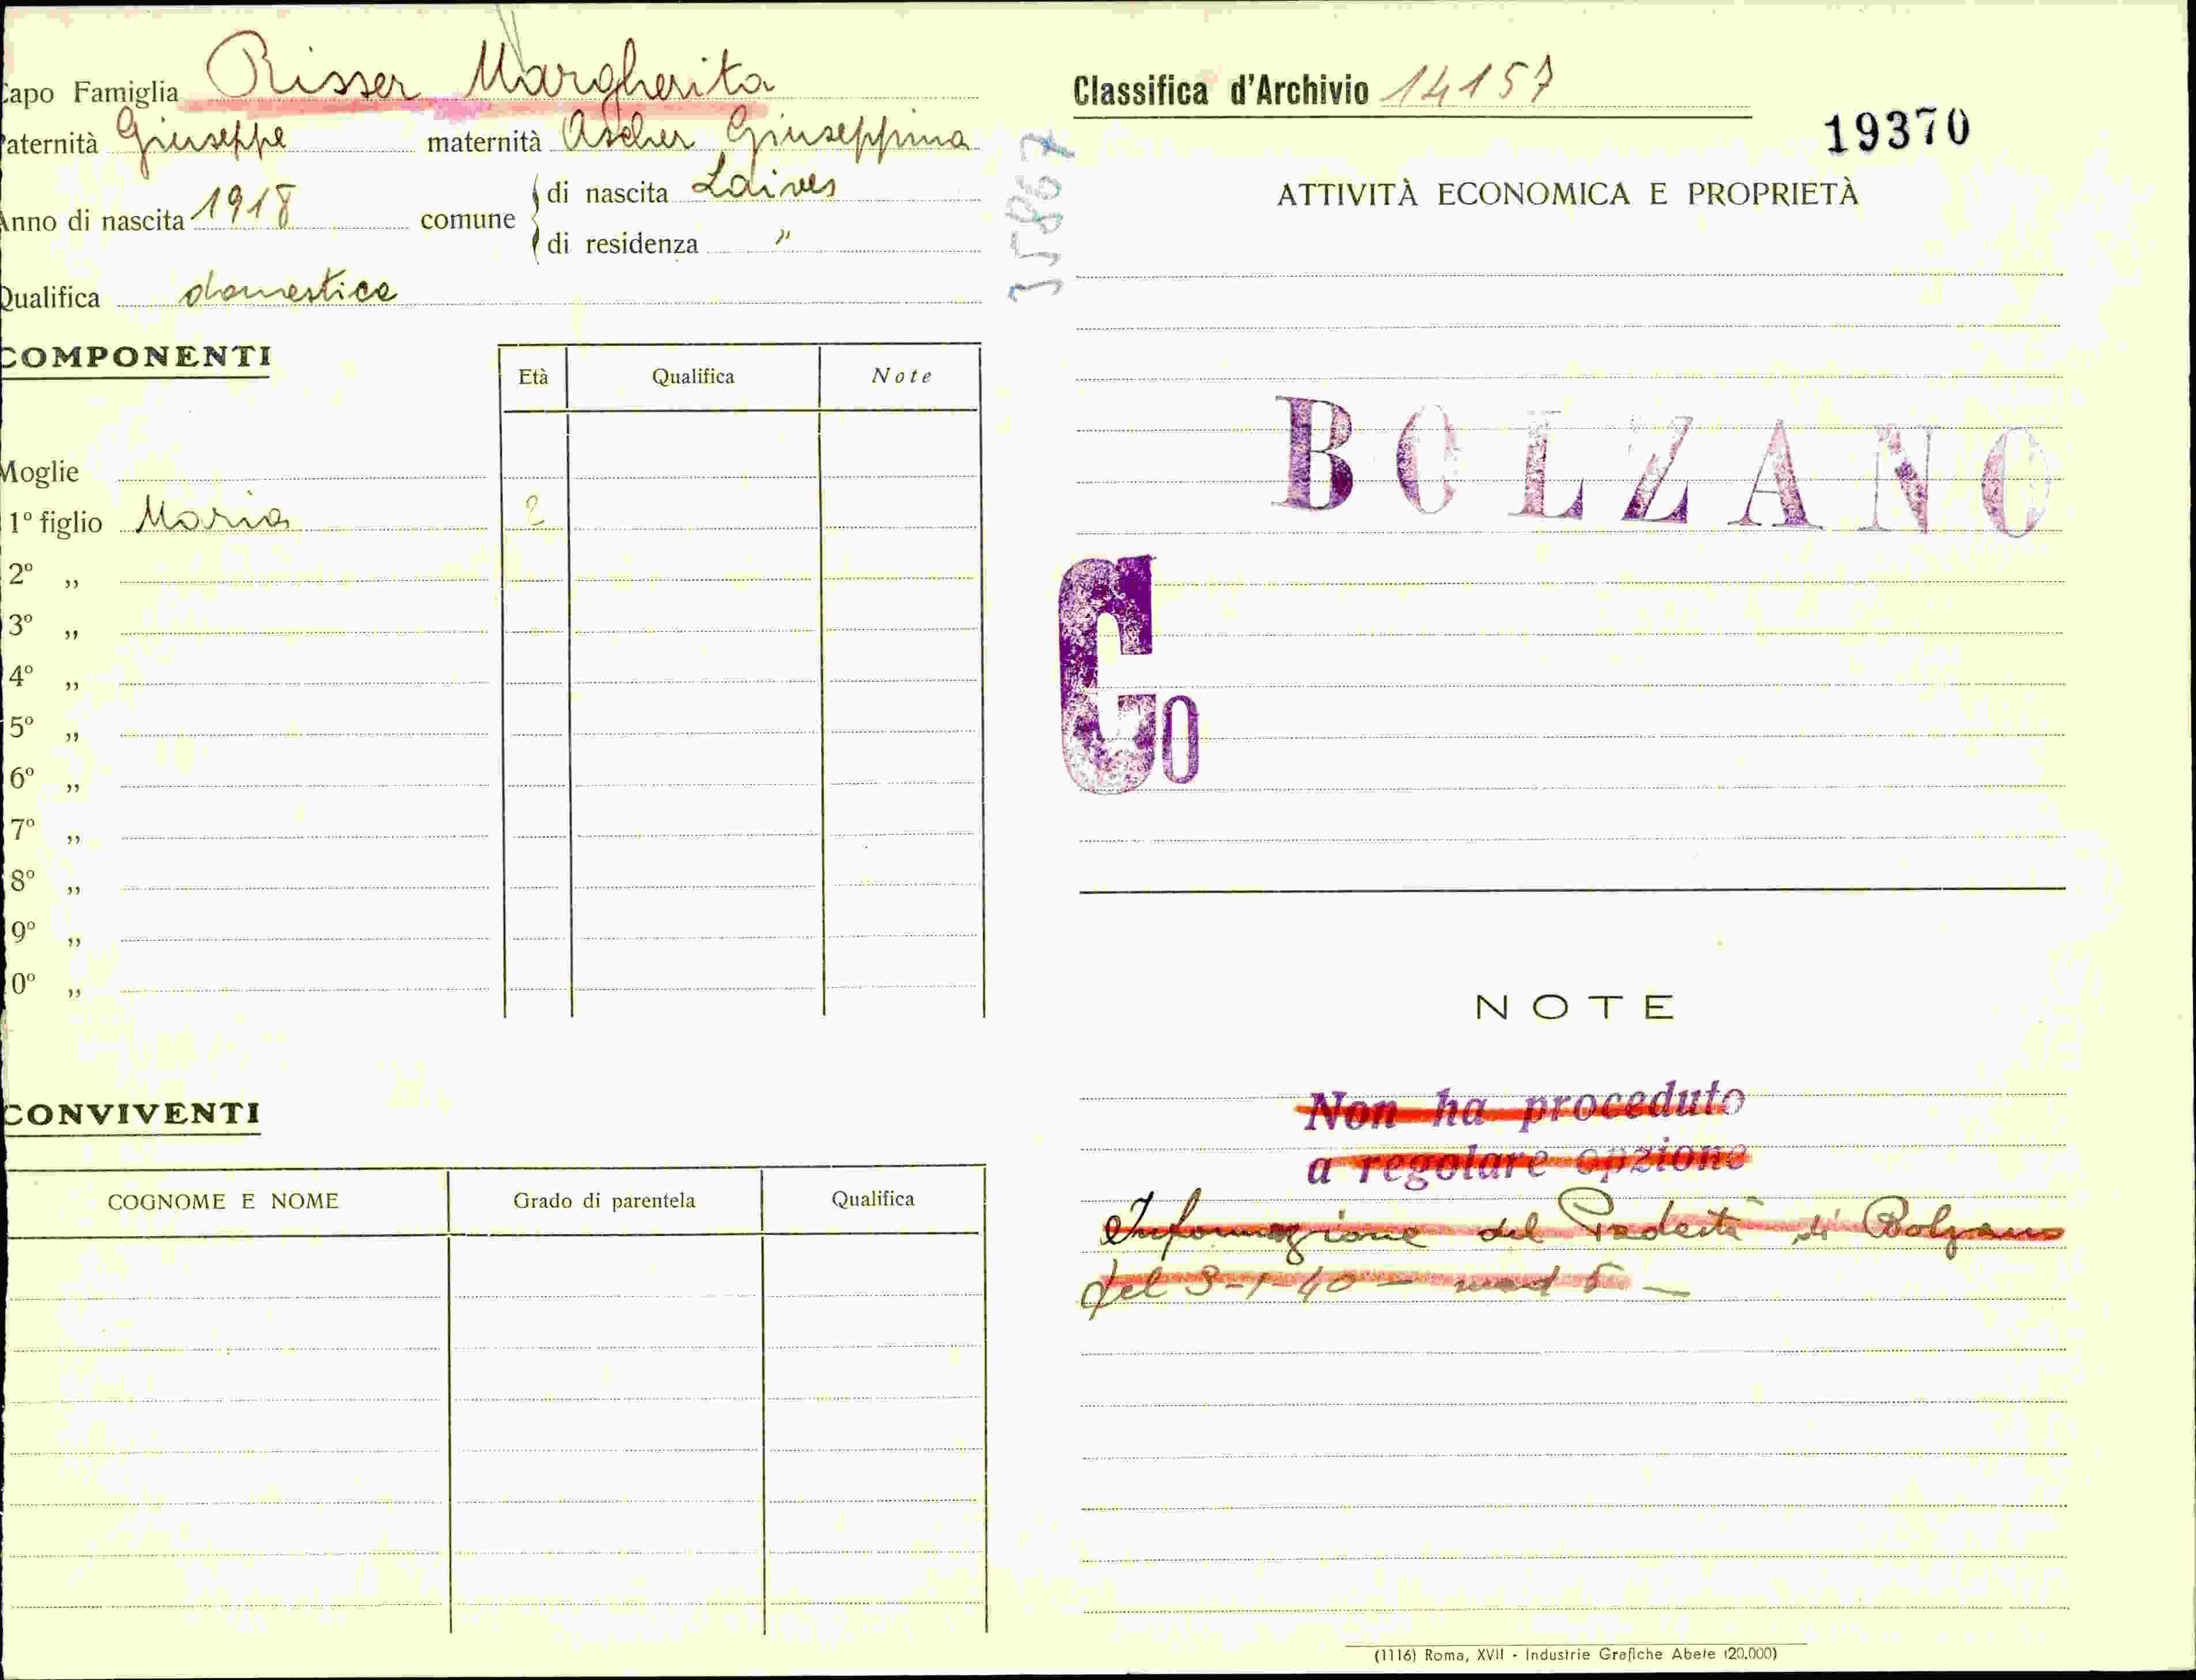 apo Famiglia Risser Margherita
aternità Giuseppe maternità Ascher Giuseppina
Anno di nascita 1918 comune di nascita Laives
di residenza "
Qualifica domestica
COMPONENTI
Età Qualifica Note
Moglie
1º figlio Maria 2
2º ,,
3º ,,
4º ,,
5º ,,
6º ,,
7º ,,
8º ,,
9º ,,
0º ,,
CONVIVENTI
COGNOME E NOME Grado di parentela Qualifica
35867
Classifica d'Archivio 14157
19370
ATTIVITÀ ECONOMICA E PROPRIETÀ
BOLZANO
Co
NOTE
Non ha proceduto
a regolare opzione
Informazione del Podestà di Bolzano
del 3-1-40 - mod 5 -
(1116) Roma, XVII - Industrie Grafiche Abete (20.000)